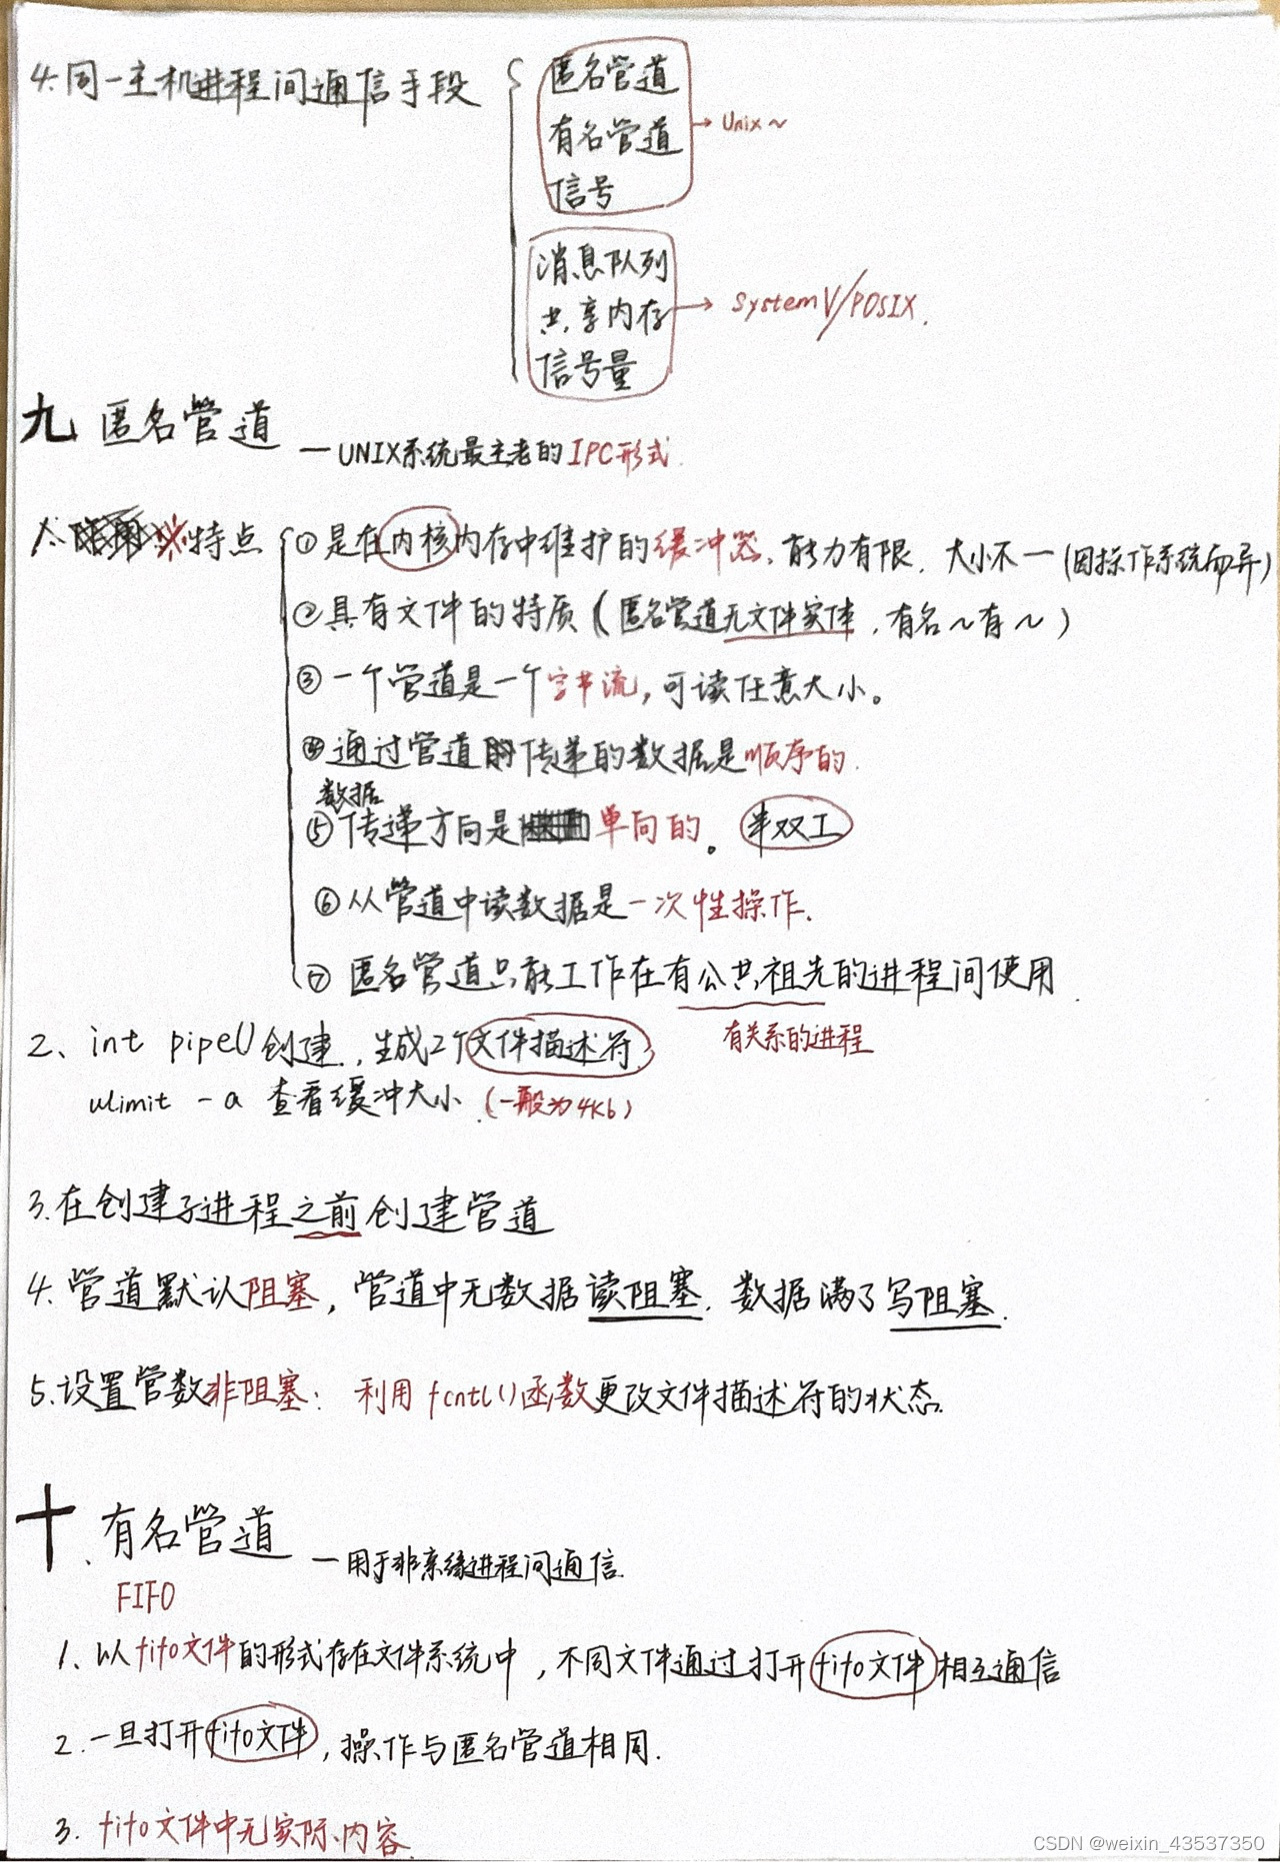 4.同一主机进程间通信手段
匿名管道
有名管道
信号
→ Unix～
消息队列
共享内存
信号量
→ SystemV/POSIX.
九 匿名管道 —UNIX系统最主老的IPC形式.
1. 特点
①是在内核内存中维护的缓冲器、能力有限. 大小不一(因操作系统而异)
②具有文件的特质(匿名管道无文件实体,有名～有～)
③一个管道是一个字节流,可读任意大小。
④通过管道传递的数据是顺序的.
数据
⑤传递方向是单向的。 半双工
⑥从管道中读数据是一次性操作.
⑦ 匿名管道只能工作在有公共祖先的进程间使用.
有关系的进程
2、int pipe()创建,生成2个文件描述符
ulimit -a 查看缓冲大小.(一般为4Kb)
3.在创建子进程之前创建管道
4.管道默认阻塞,管道中无数据读阻塞.数据满了写阻塞.
5.设置管数非阻塞: 利用fcntl()函数更改文件描述符的状态.
十、有名管道 —用于非亲缘进程间通信.
FIFO
1、以fifo文件的形式存在文件系统中,不同文件通过打开fifo文件相互通信
2.一旦打开fifo文件,操作与匿名管道相同.
3. fifo文件中无实际内容.
CSDN @weixin_43537350